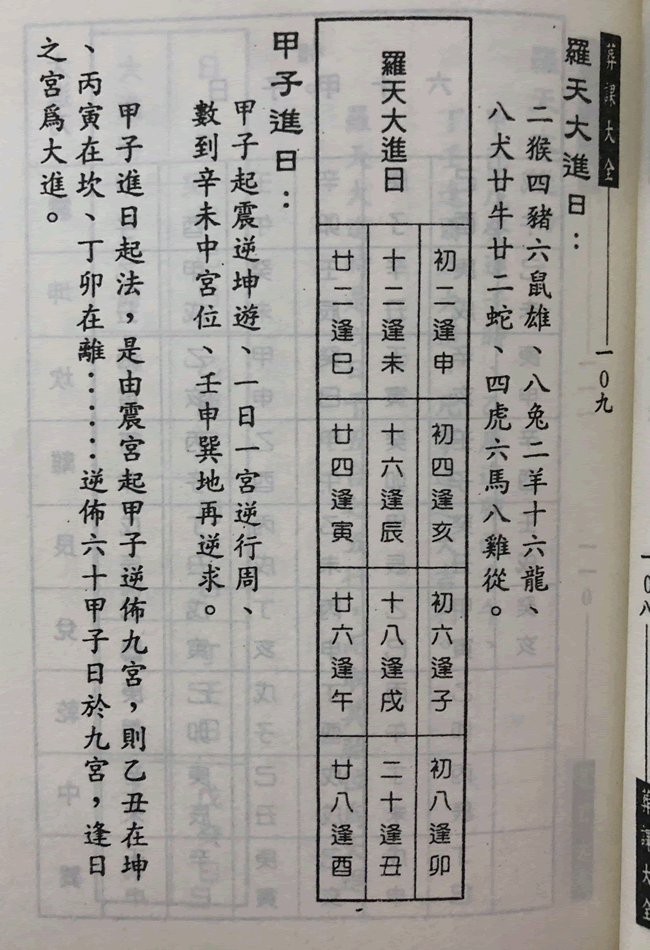 葬課大全
一0九
羅天大進日：
二猴四豬六鼠雄、八兔二羊十六龍、
八犬廿牛廿二蛇、四虎六馬八雞從。
羅天大進日
初二逢申
初四逢亥
初六逢子
初八逢卯
十二逢未
十六逢辰
十八逢戌
二十逢丑
廿二逢巳
廿四逢寅
廿六逢午
廿八逢酉
甲子進日：
甲子起震逆坤遊、一日一宮逆行周、
數到辛未中宮位、壬申巽地再逆求。
甲子進日起法，是由震宮起甲子逆佈九宮，則乙丑在坤
、丙寅在坎、丁卯在離：：：：逆佈六十甲子日於九宮，逢日
之宮爲大進。
一0八
葬課大全